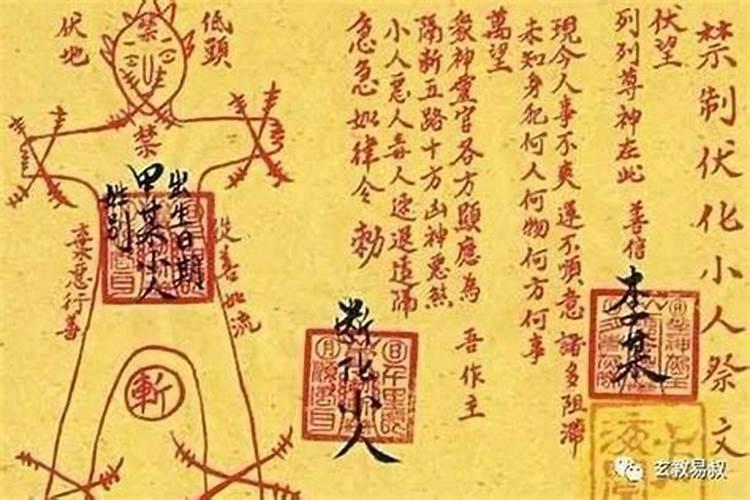 禁制伏化小人祭文
伏望
列列尊神在此 善信 李某
現今人事不爽運不順意諸多阻滯
未知身犯何人何物何方何事
萬望
眾神靈官各方顯應為 吾作主
隔斷五路十方凶神惡煞
小人惡人毒人速退遠隔
急急如律令 勅
斷化小人
低頭
伏地
禁
禁
出生日期
甲某小人
姓別
從善如流
棄惡行善
斬
玄教易叔